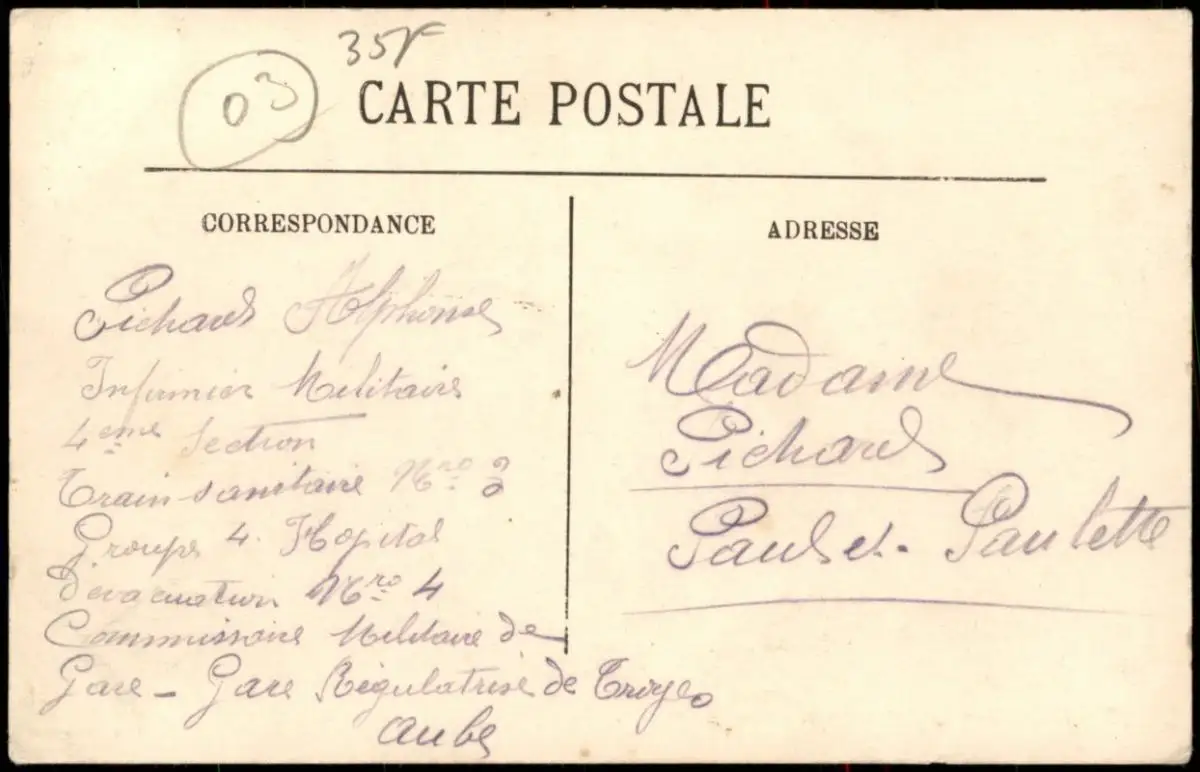 03
35F
CARTE POSTALE
CORRESPONDANCE
Pichard Alphonse
Infirmier Militaire
4eme Section
Train-sanitaire Nro 3
Groupe 4. Hopital
d'évacuation Nro 4
Commissaire Militaire de
Gare - Gare Régulatrise de Troyes
Aube
ADRESSE
Madame
Pichard
Paul et. Paulette